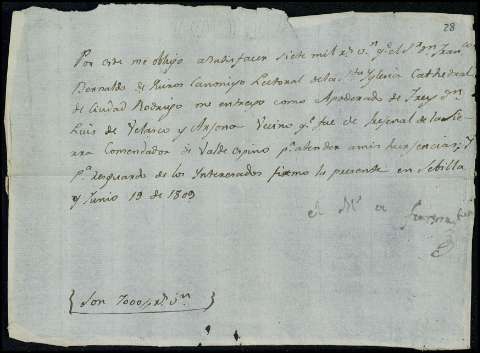 28
Por este me obligo a satisfacer siete mil rs. vn. qe. el Sr. Dn. Fran.co
Bernaldo de Quiros Canonigo Lectoral de la Sta. Yglesia Cathedral
de Ciudad Rodrigo me entrego como Apoderado de Frey Dn.
Luis de Velasco y Arjona Vecino qe. fue de Fregenal de la Sie-
rra Comendador de Valde espino pa. atender a mis urgencias; y
pa. resguardo de los Interesados firmo la presente en Sebilla
y Junio 19 de 1809
el M. de
Son 7000 rs. vn.